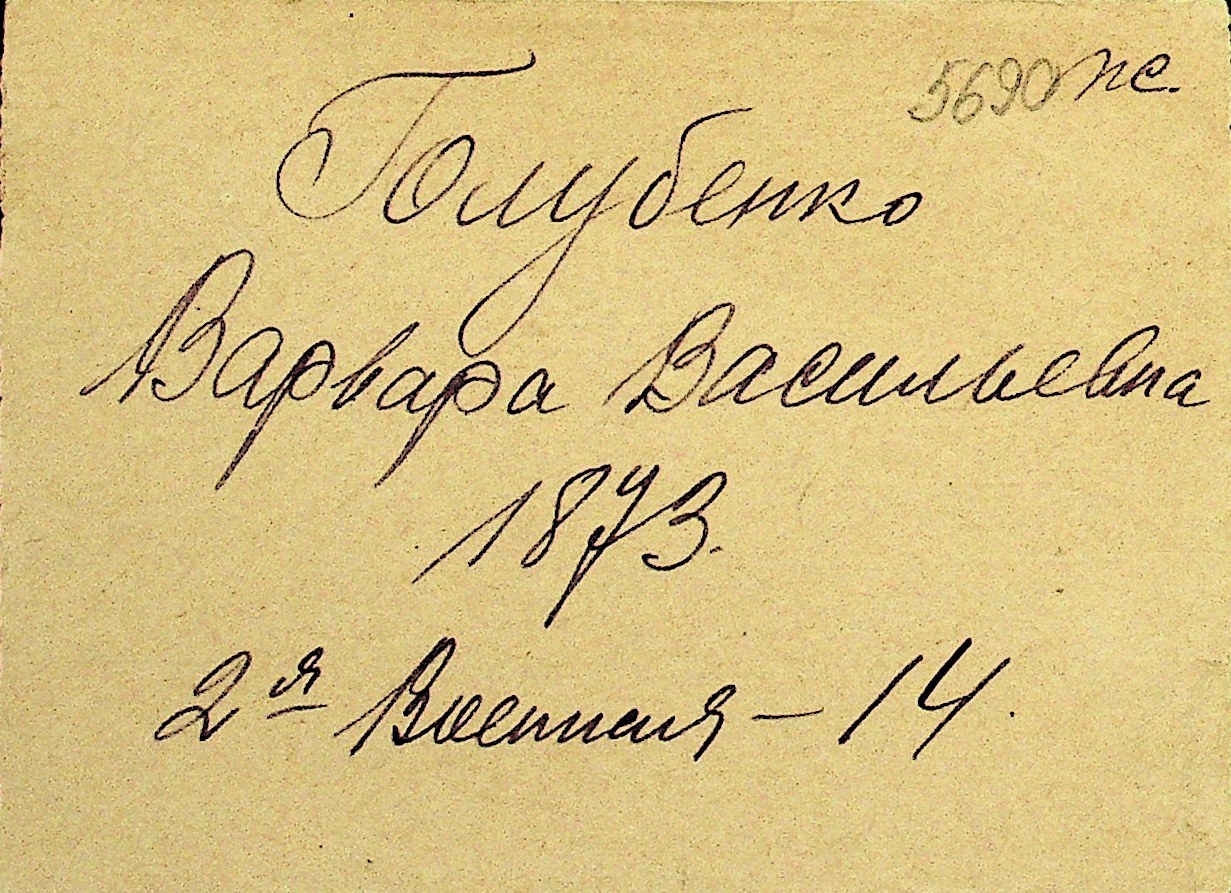 5690 пс.
Голубенко
Варвара Васильевна
1873.
2я Военная – 14.